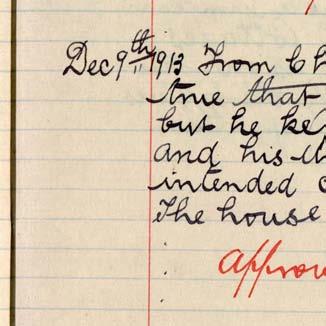 Dec 9th 1913 From Ch
true that
but he ke
and his
intended
The house
Approv